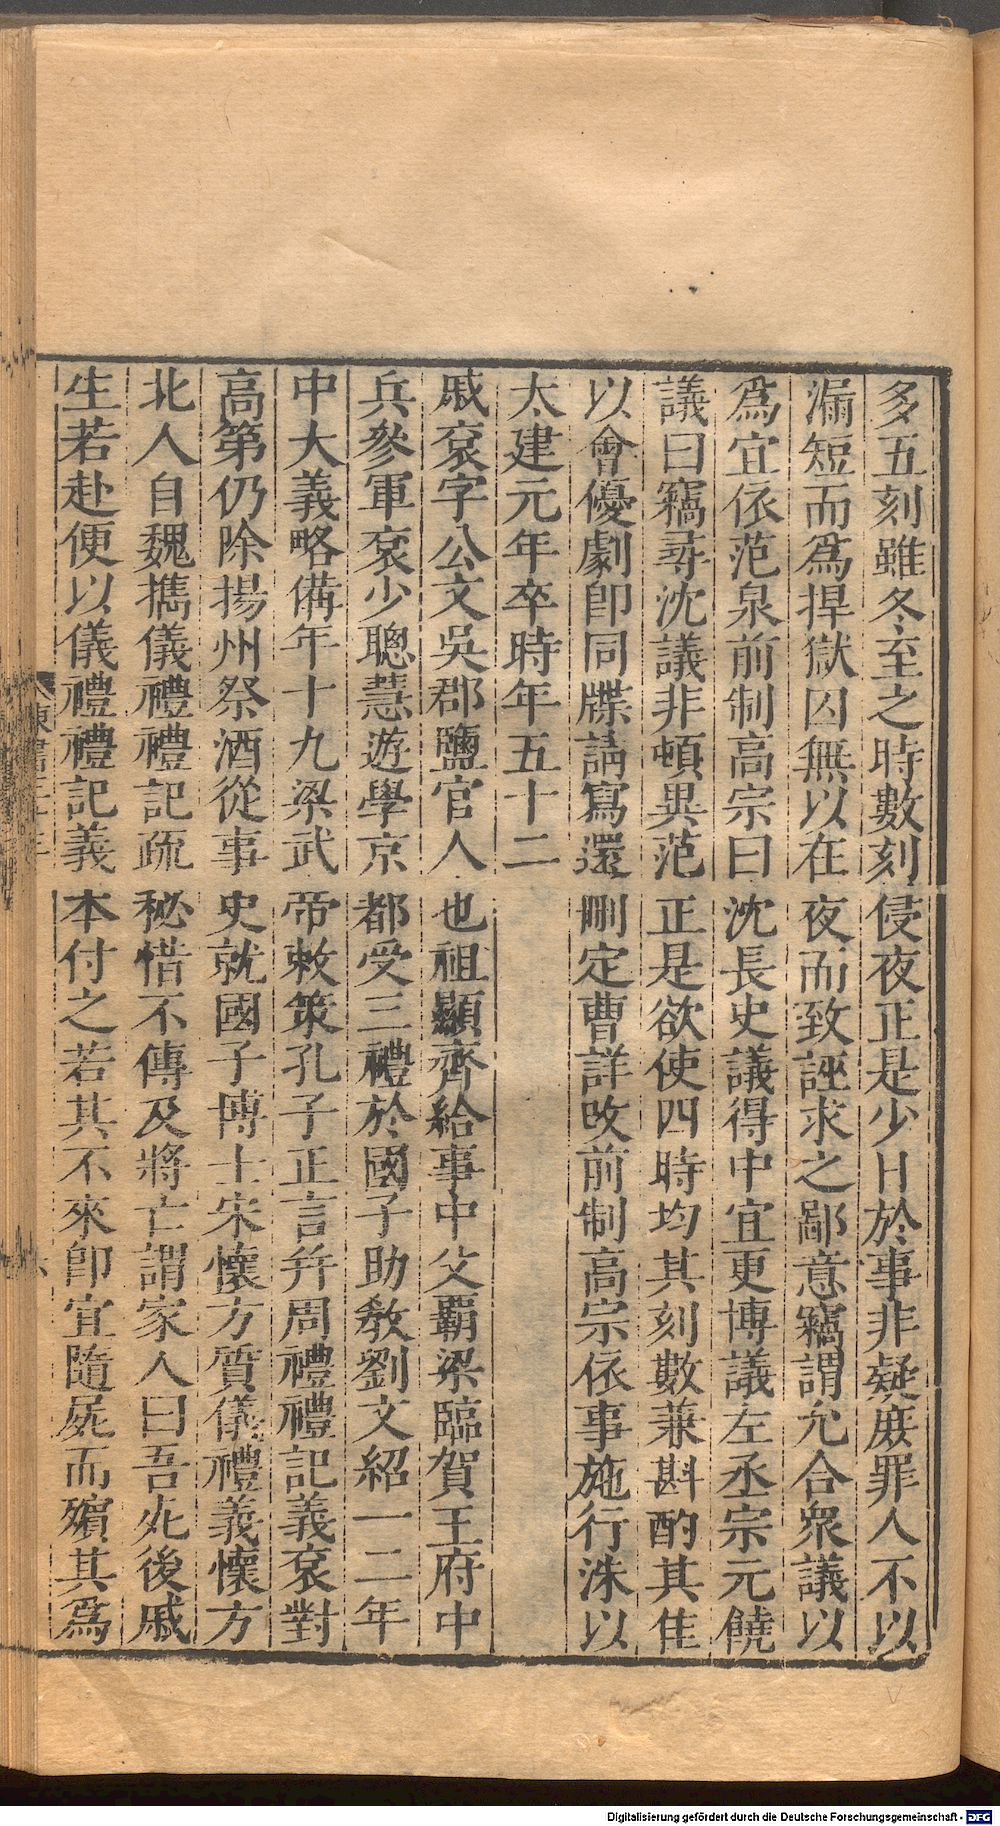 多五刻雖冬至之時數刻侵夜正是少日於事非疑庶罪人不以
漏短而爲捍獄囚無以在夜而致誣求之鄙意竊謂允合衆議以
爲宜依范泉前制高宗曰沈長史議得中宜更博議左丞宗元饒
議曰竊尋沈議非頓異范正是欲使四時均其刻數兼斟酌其佳
以會優劇卽同牒請寫還刪定曹詳改前制高宗依事施行洙以
太建元年卒時年五十二
戚袞字公文吳郡鹽官人也祖顯齊給事中父霸梁臨賀王府中
兵參軍袞少聰慧遊學京都受三禮於國子助教劉文紹一二年
中大義略備年十九梁武帝敕策孔子正言幷周禮禮記義袞對
高第仍除揚州祭酒從事史就國子博士宋懷方質儀禮義懷方
北人自魏攜儀禮禮記疏秘惜不傳及將亡謂家人曰吾死後戚
生若赴便以儀禮禮記義本付之若其不來卽宜隨屍而殯其爲
Digitalisierung gefördert durch die Deutsche Forschungsgemeinschaft - DFG